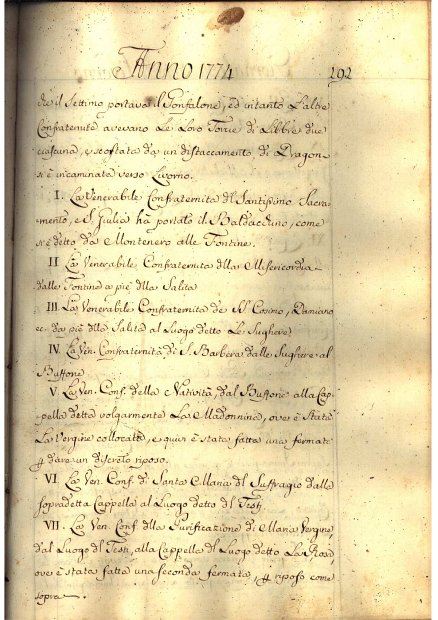 Anno 1774 292
che il Settimo portava il Gonfalone, ed intanto l'altre
Confraternite avevano le loro Torcie di Libbre due
ciascuna, e scostata da un distaccamento di Dragon-
si è incaminata verso Livorno.
I. La Venerabile Confraternita dl Santissimo Sacra-
mento, e S. Giulia hà portato il Baldacchino, come
si è detto da Montenero alle Fontine.
II La Venerabile Confraternita dlla Misericordia
dalle Fontine a piè dlla Salita
III La Venerabile Confraternita de SS. Cosimo, Damiano
ec. da piè dlla Salita al Luogo detto Le Sughere
IV. La Ven. Confraternità di S. Barbera dalle Sughere al
Buffone
V La Ven. Conf. della Natività, dal Buffone alla Cap-
pella detta volgarmente La Madonnina, ove è Stata
La Vergine collocata, e quivi è stata fatta una fermata
p dare un discreto riposo.
VI. La Ven. Conf. di Santa Maria dl Suffragio dalla
sopradetta Cappella al Luogo detto dl Testi
VII. La Ven. Conf dlla Purificazione di Maria Vergine,
dal Luogo dl Testi, alla Cappella dl Luogo detto La Rosa,
ove è stata fatta una seconda fermata, p riposo come
sopra.